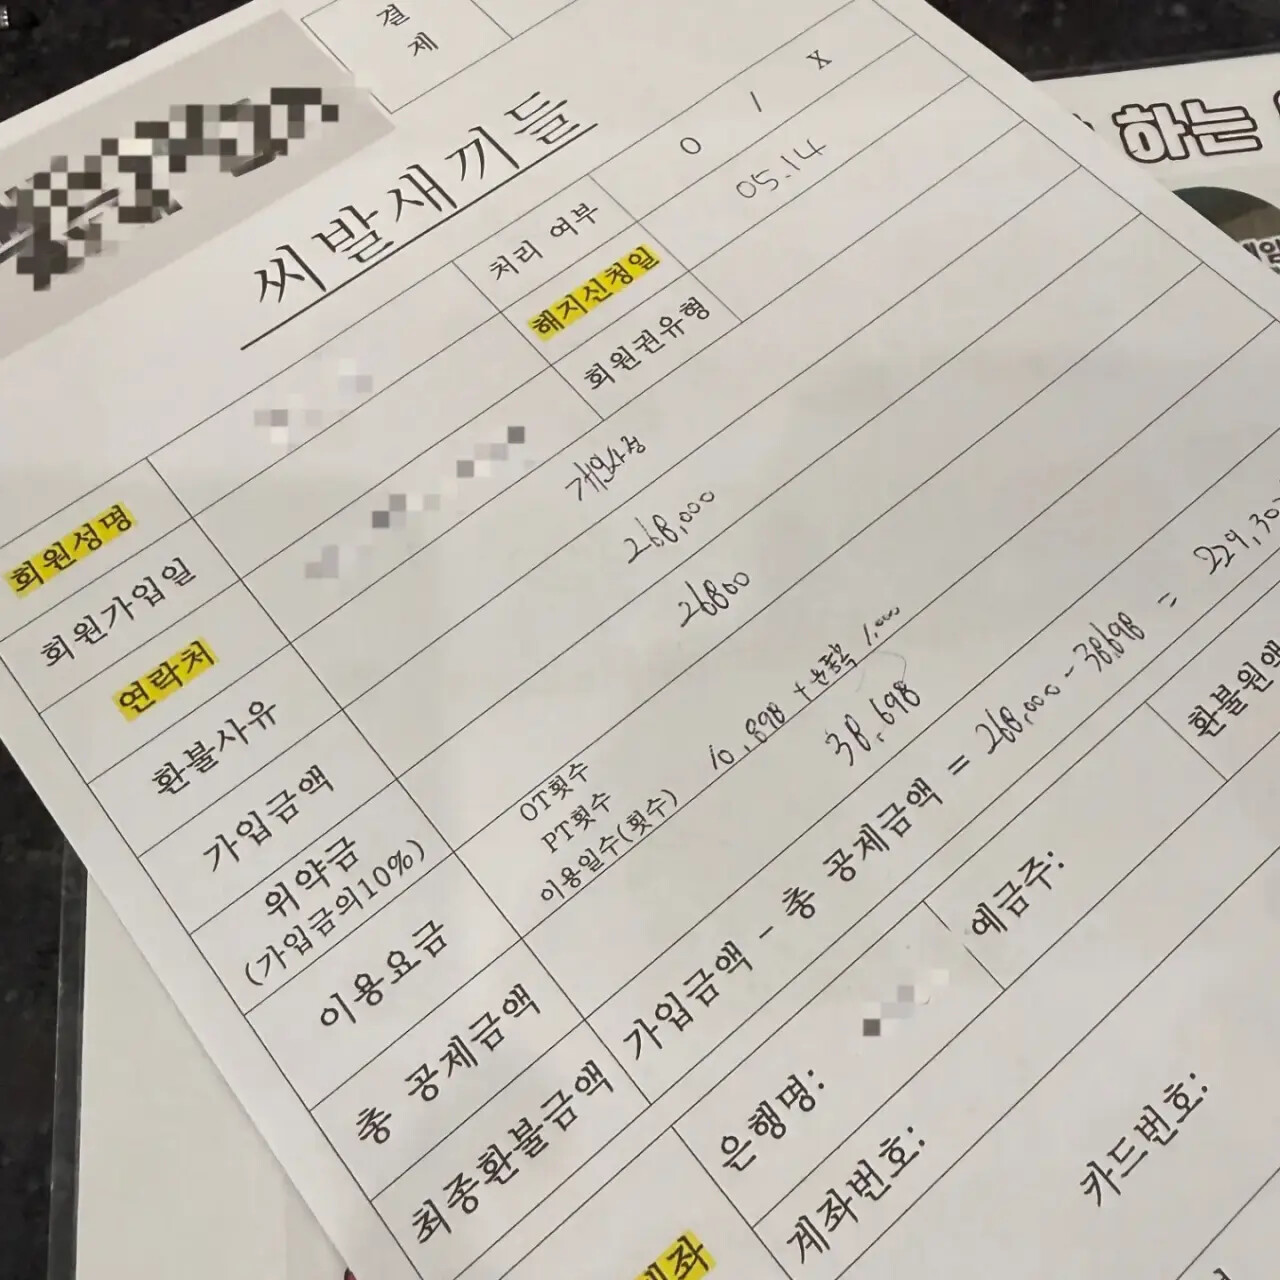 결제
씨발새끼들
처리 여부
O / X
해지신청일
05.14
회원권유형
회원성명
회원가입일
연락처
환불사유
개인사정
가입금액
268,000
위약금
(가입금의10%)
26800
이용요금
OT횟수
PT횟수
이용일수(횟수)
10,898 + 운동복 1,000
총 공제금액
38,698
최종환불금액
가입금액 - 총 공제금액 = 268,000 - 38,698 = 229,30
환불원액
은행명:
예금주:
계좌번호:
카드번호:
하는